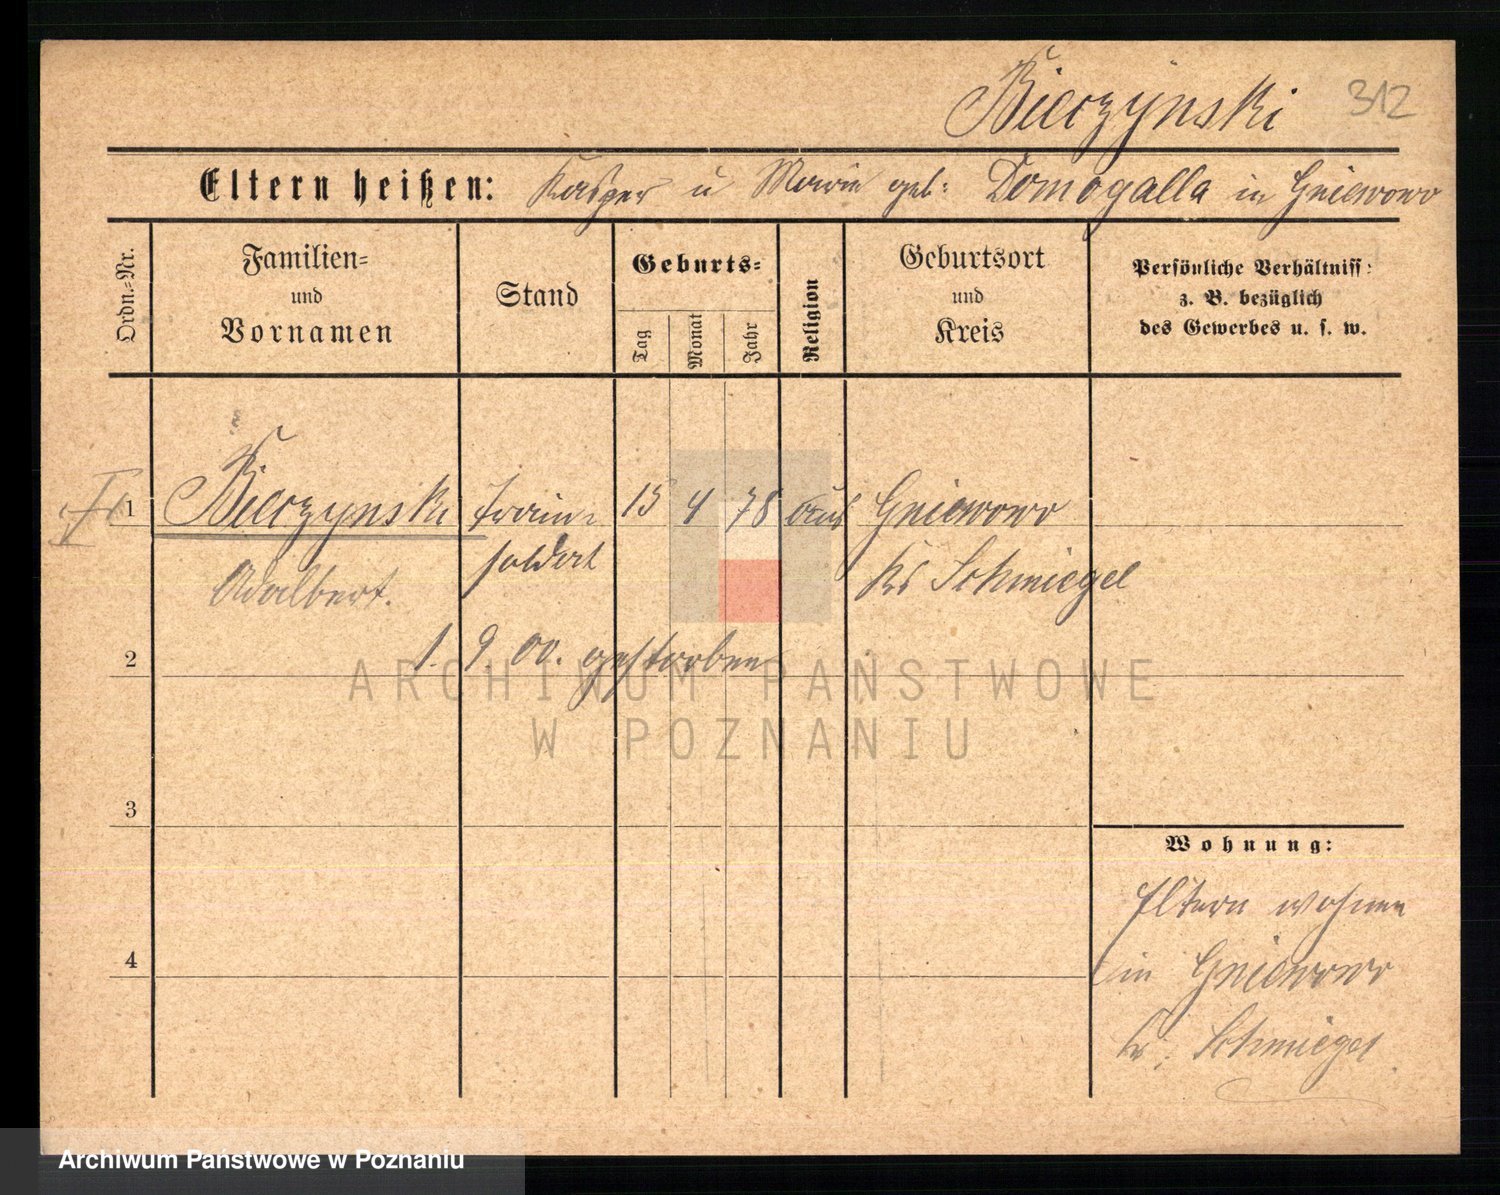 Bierzynski 312
Eltern heißen: Kasper u Marie geb: Domogalla in Gniewowo
Ordn.-Nr.
Familien-
und
Vornamen
Stand
Geburts-
Tag
Monat
Jahr
Religion
Geburtsort
und
Kreis
Persönliche Verhältniss:
z. B. bezüglich
des Gewerbes u. s. w.
1 Bierzynski Train- 15 4 78 Gniewowo
Adalbert. soldat Krs Schmiegel
1. 9. 00. gestorben
2
3
4
Wohnung:
Eltern wohnen
in Gniewowo
Kr. Schmiegel
ARCHIWUM PAŃSTWOWE
W POZNANIU
Archiwum Państwowe w Poznaniu